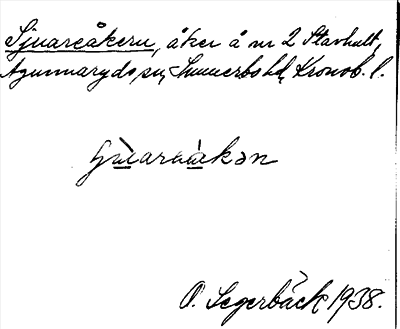 Sjuareåkern, åker å nr 2 Stavhult,
Agunnaryds sn, Sunnerbo hd, Kronob. l.
O. Segerbäck 1938.